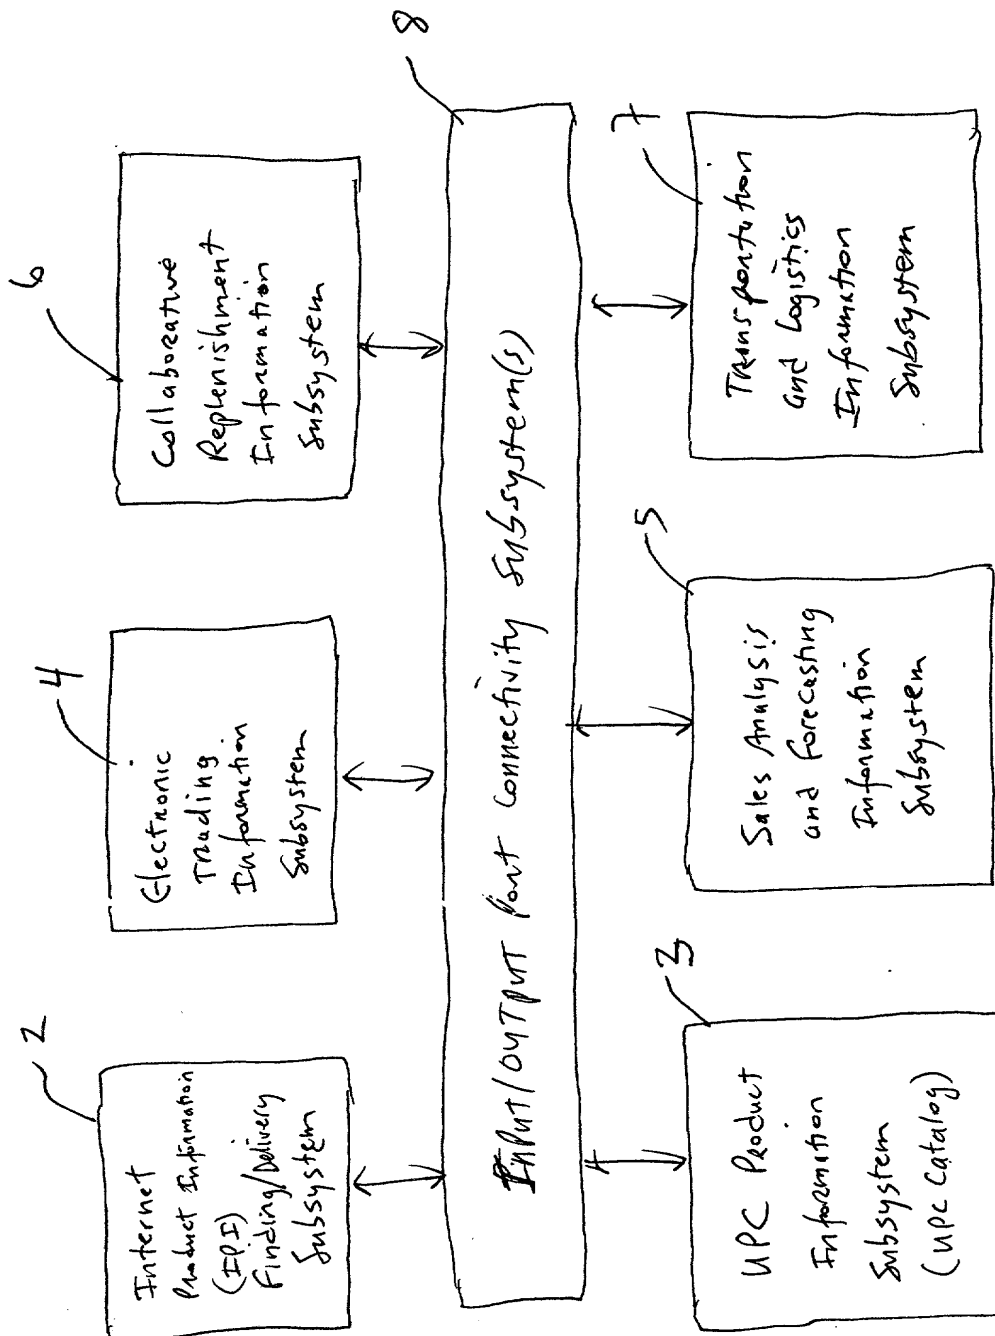 2
Internet
Product Information
(IPI)
Finding/Delivery
Subsystem
4
Electronic
Trading
Information
Subsystem
6
Collaborative
Replenishment
Information
Subsystem
8
Input/Output Port Connectivity Subsystem(s)
3
UPC Product
Information
Subsystem
(UPC Catalog)
5
Sales Analysis
and Forecasting
Information
Subsystem
7
Transportation
and Logistics
Information
Subsystem